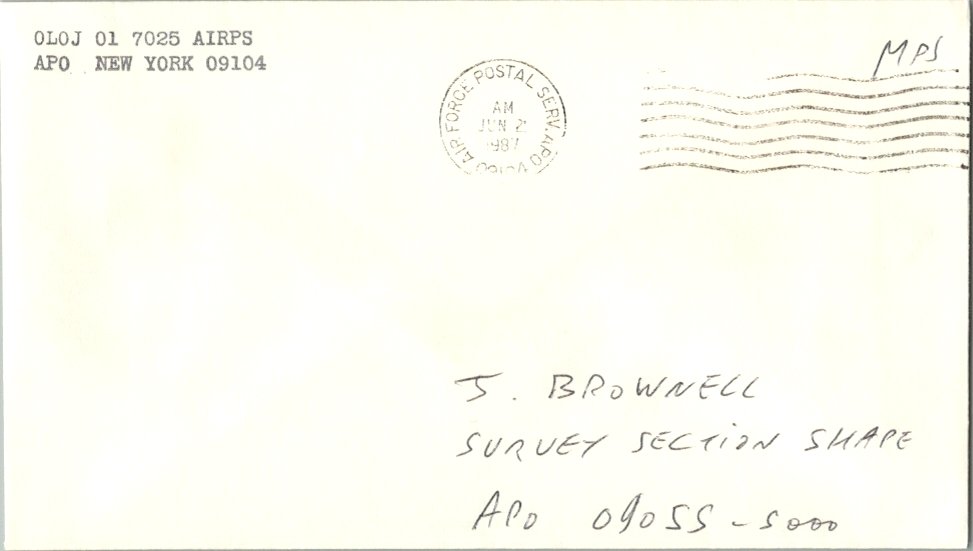 OLOJ 01 7025 AIRPS
APO NEW YORK 09104
MPS
AIR FORCE POSTAL SERV. APO
AM
JUN 2
1987
J. BROWNELL
SURVEY SECTION SHAPE
APO 09055-5000